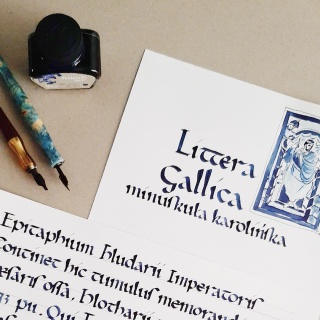 Littera
Gallica
minuſkula karolinſka
Epitaphium hludarii Imperatoriſ
Continet hic tumuluſ memorand
eſariſ oſſa, hlotharii
pii. Qui